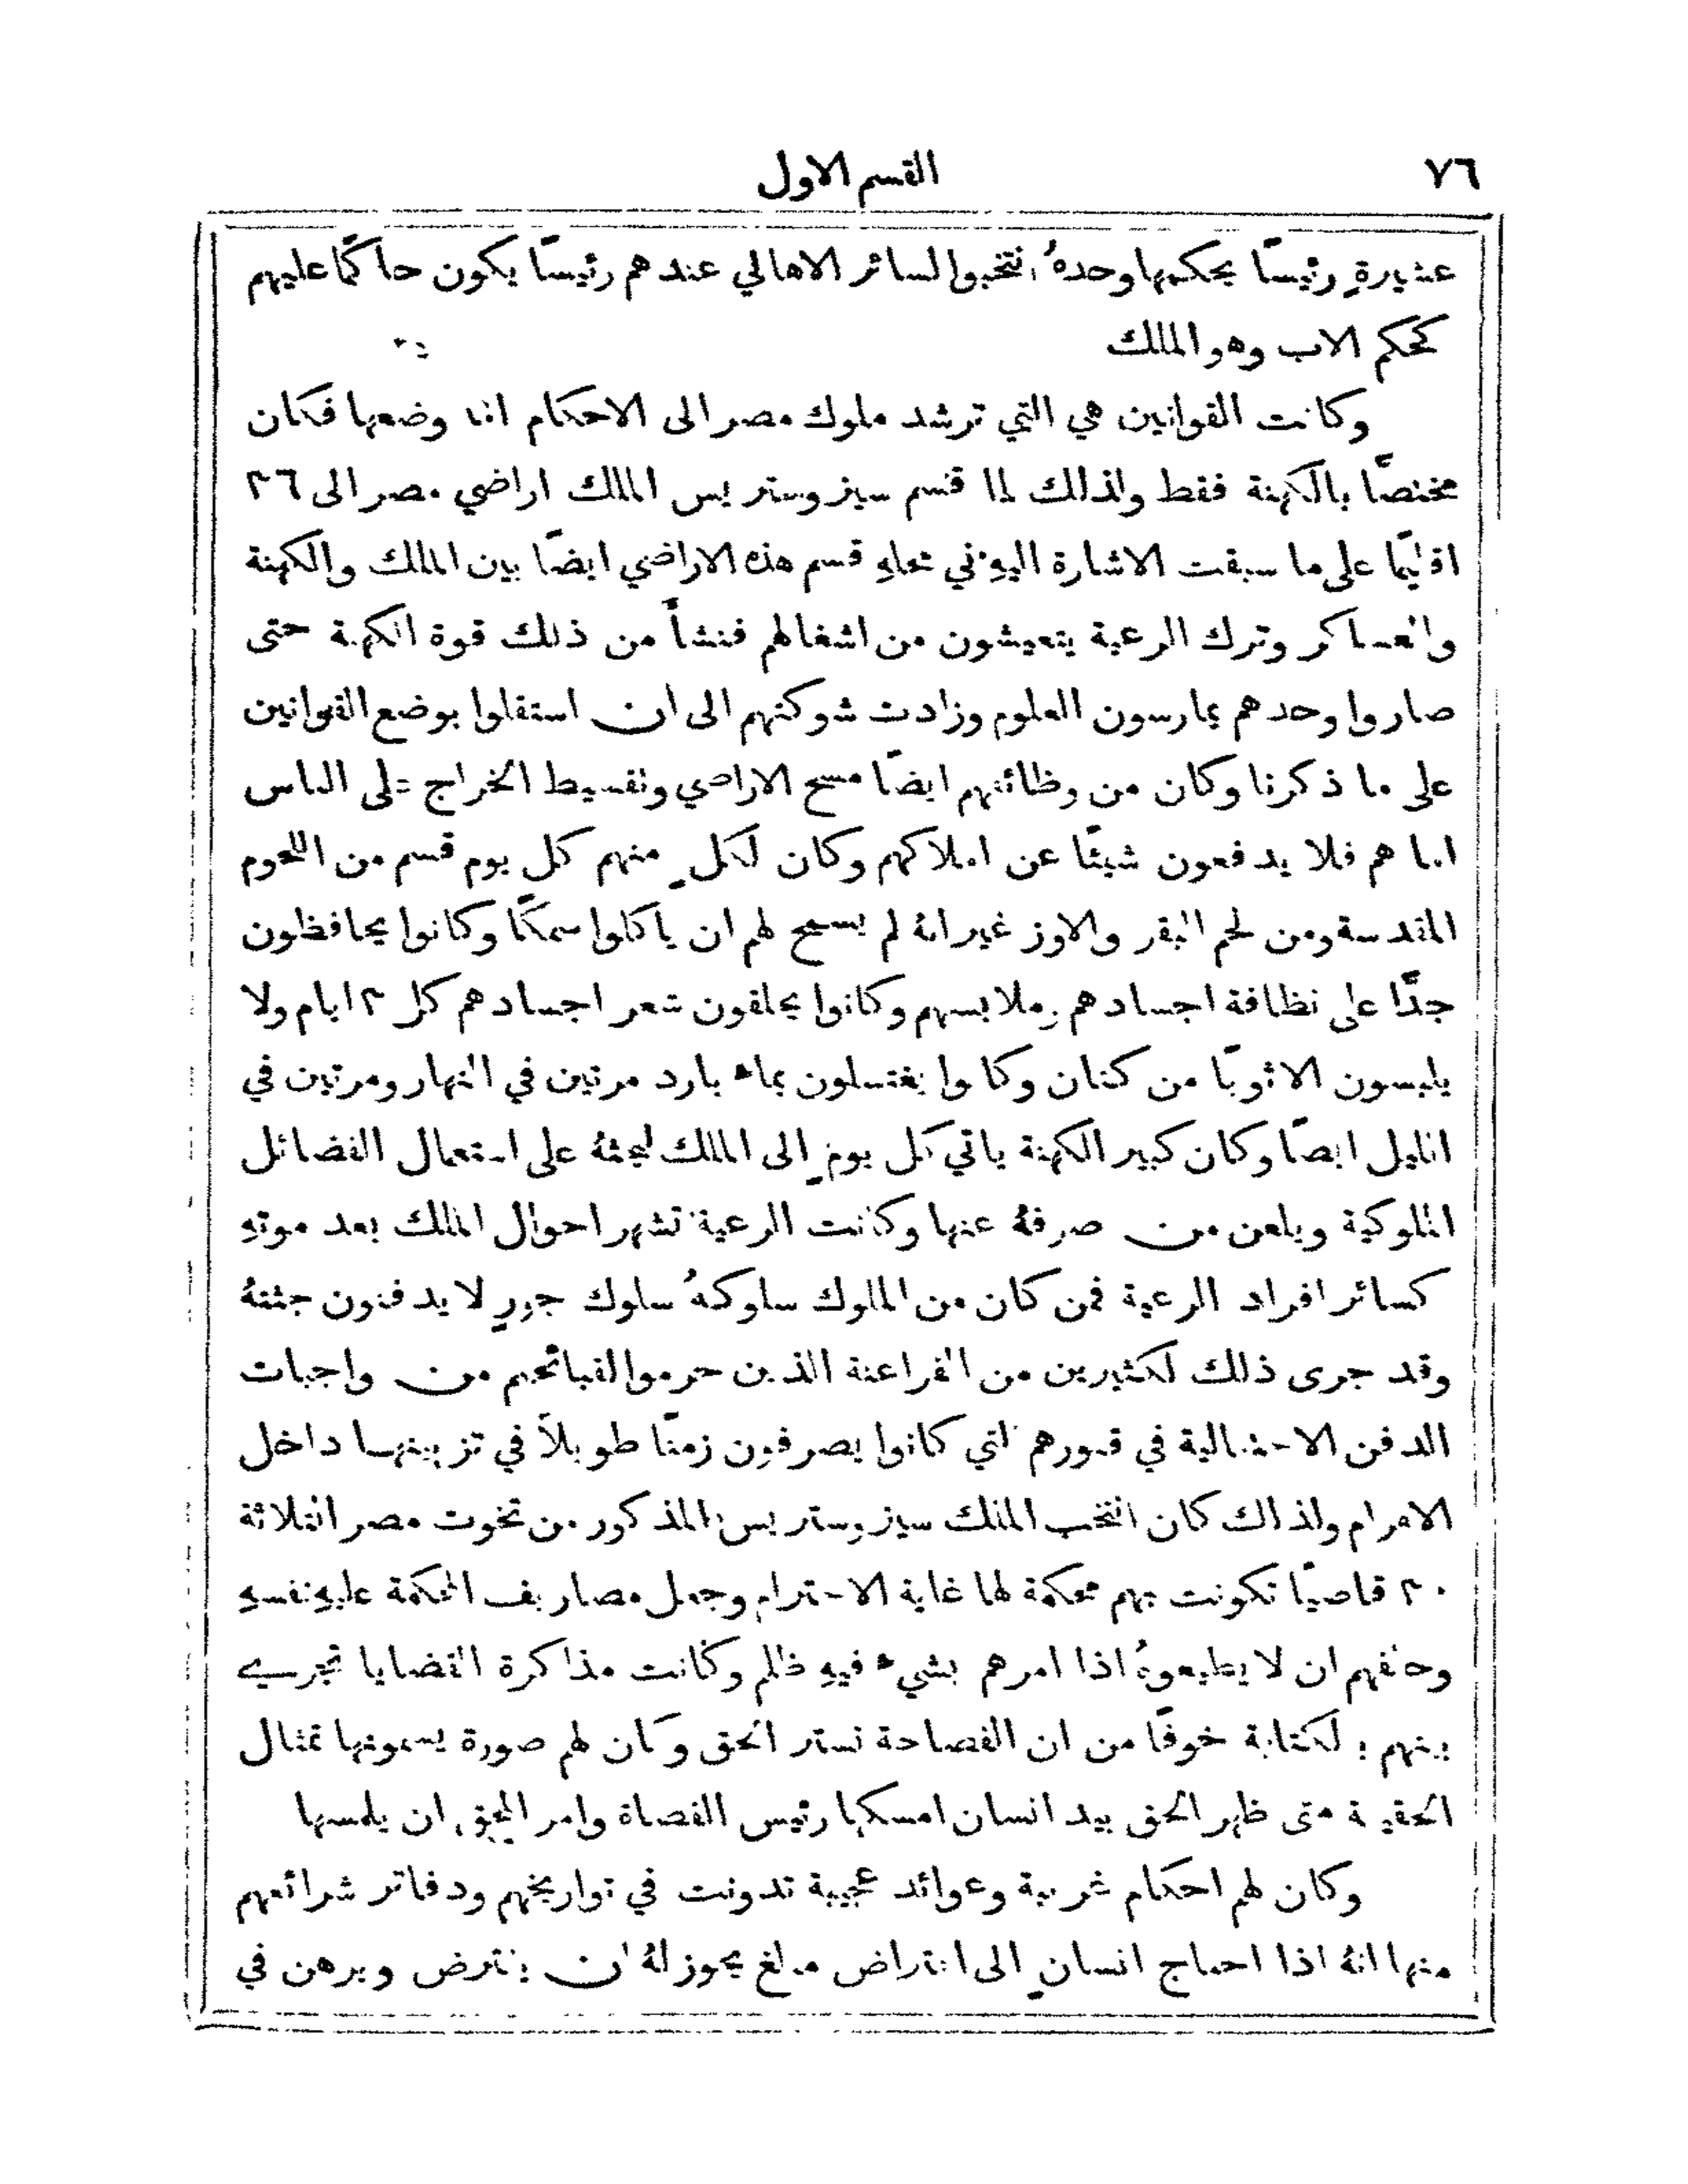 ٧٦
القسم الاول
عشيرةٍ رئيسًا يحكمها وحدهُ انتخبوا لسائر الاهالي عندهم رئيسًا يكون حاكمًا عليهم
كحكم الاب وهو الملك
وكانت القوانين هي التي ترشد ملوك مصر الى الاحكام اما وضعها فكان
مختصًا بالكهنة فقط ولذلك لما قسم سيزوستريس الملك اراضي مصر الى ٣٦
اقليمًا على ما سبقت الاشارة اليهِ في محلهِ قسم هذه الاراضي ايضًا بين الملك والكهنة
والعساكر وترك الرعية يتعيشون من اشغالهم فنشأ من ذلك قوة الكهنة حتى
صاروا وحدهم يمارسون العلوم وزادت شوكتهم الى ان استقلوا بوضع القوانين
على ما ذكرنا وكان من وظائفهم ايضًا مسح الاراضي وتقسيط الخراج على الناس
اما هم فلا يدفعون شيئًا عن املاكهم وكان لكلٍ منهم كل يوم قسم من اللحوم
المقدسة ومن لحم البقر والاوز غير انهُ لم يسمح لهم ان ياكلوا سمكًا وكانوا يحافظون
جدًّا على نظافة اجسادهم وملابسهم وكانوا يحلقون شعر اجسادهم كل ٣ ايام ولا
يلبسون الا ثوبًا من كتان وكانوا يغتسلون بماءٍ بارد مرتين في النهار ومرتين في
الليل ايضًا وكان كبير الكهنة ياتي كل يومٍ الى الملك ليحثهُ على استعمال الفضائل
الملوكية ويلعن من صرفهُ عنها وكانت الرعية تشهر احوال الملك بعد موتهِ
كسائر افراد الرعية فمن كان من الملوك سلوكهُ سلوك جورٍ لا يدفنون جثتهُ
وقد جرى ذلك لكثيرين من الفراعنة الذين حرموا لقبائحهم من واجبات
الدفن الاحتفالية في قبورهم التي كانوا يصرفون زمنًا طويلاً في تزيينها داخل
الاهرام ولذلك كان انتخب الملك سيزوستريس المذكور من تخوت مصر الثلاثة
٣٠ قاضيًا تكونت بهم محكمة لها غاية الاحترام وجعل مصاريف المحكمة عليهِ نفسهِ
وحلفهم ان لا يطيعوهُ اذا امرهم بشيءٍ فيهِ ظلم وكانت مذاكرة القضايا تجري
بينهم بالكتابة خوفًا من ان الفصاحة تستر الحق وكان لهم صورة يسمونها تمثال
الحقيقة متى ظهر الحق بيد انسان امسكها رئيس القضاة وامر المحق ان يلمسها
وكان لهم احكام غريبة وعوائد عجيبة تدونت في تواريخهم ودفاتر شرائعهم
منها انهُ اذا احتاج انسانٍ الى اقتراض مبلغ يجوز لهُ ان يقترض ويرهن في